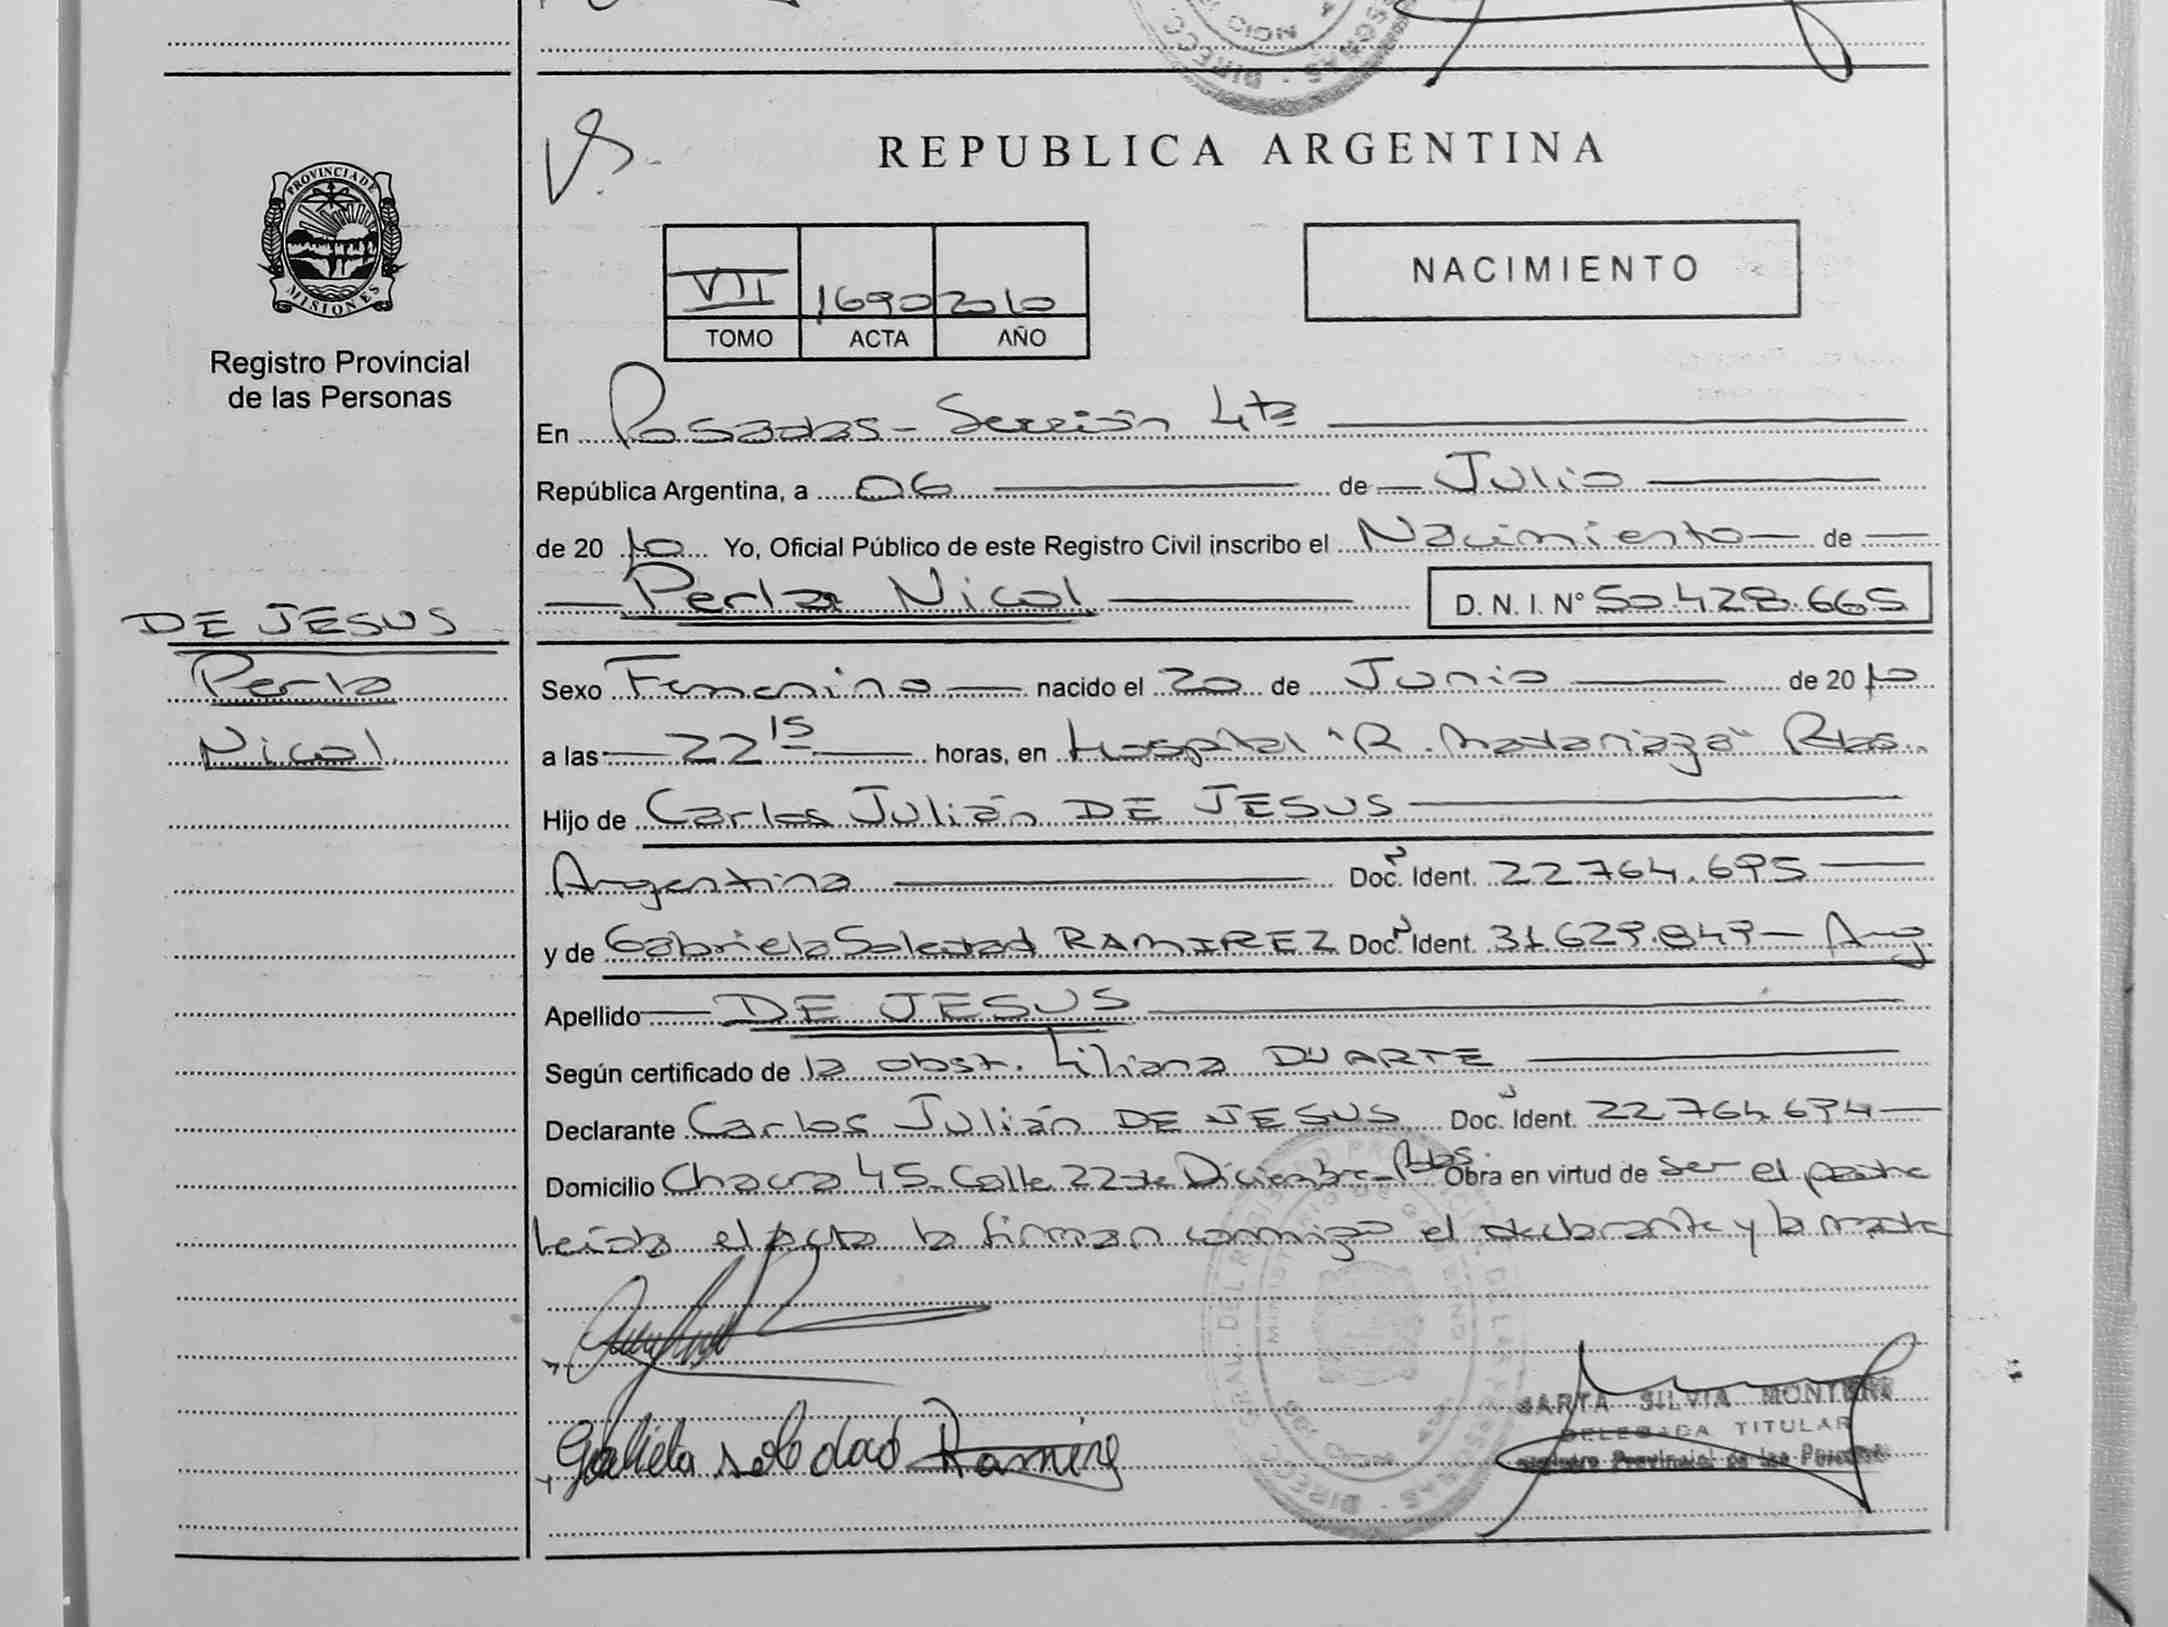 REPUBLICA ARGENTINA
PROVINCIA DE
MISIONES
Registro Provincial
de las Personas
NACIMIENTO
VII 1690 2010
TOMO ACTA AÑO
En Posadas - Sección 4ta
República Argentina, a 06 de Julio
de 20 10 Yo, Oficial Público de este Registro Civil inscribo el Nacimiento de
Perla Nicol D. N. I. N° 50.428.665
DE JESUS
Perla
Nicol
Sexo Femenino nacido el 20 de Junio de 20 10
a las 22 15 horas, en Hospital "R. Madariaga"
Hijo de Carlos Julián DE JESUS
Argentina Doc. Ident. 22.764.695
y de Gabriela Soledad RAMIREZ Doc. Ident. Arg
Apellido DE JESUS
Según certificado de la obst. Liliana DUARTE
Declarante Carlos Julián DE JESUS Doc. Ident. 22.764.694
Domicilio Chacra 45 - Calle 22 de Diciembre - Obra en virtud de ser el padre
leída el acta la firman conmigo el declarante y la madre
Gabriela soledad Ramirez
SILVIA
DELEGADA TITULAR
Registro Provincial de las Personas